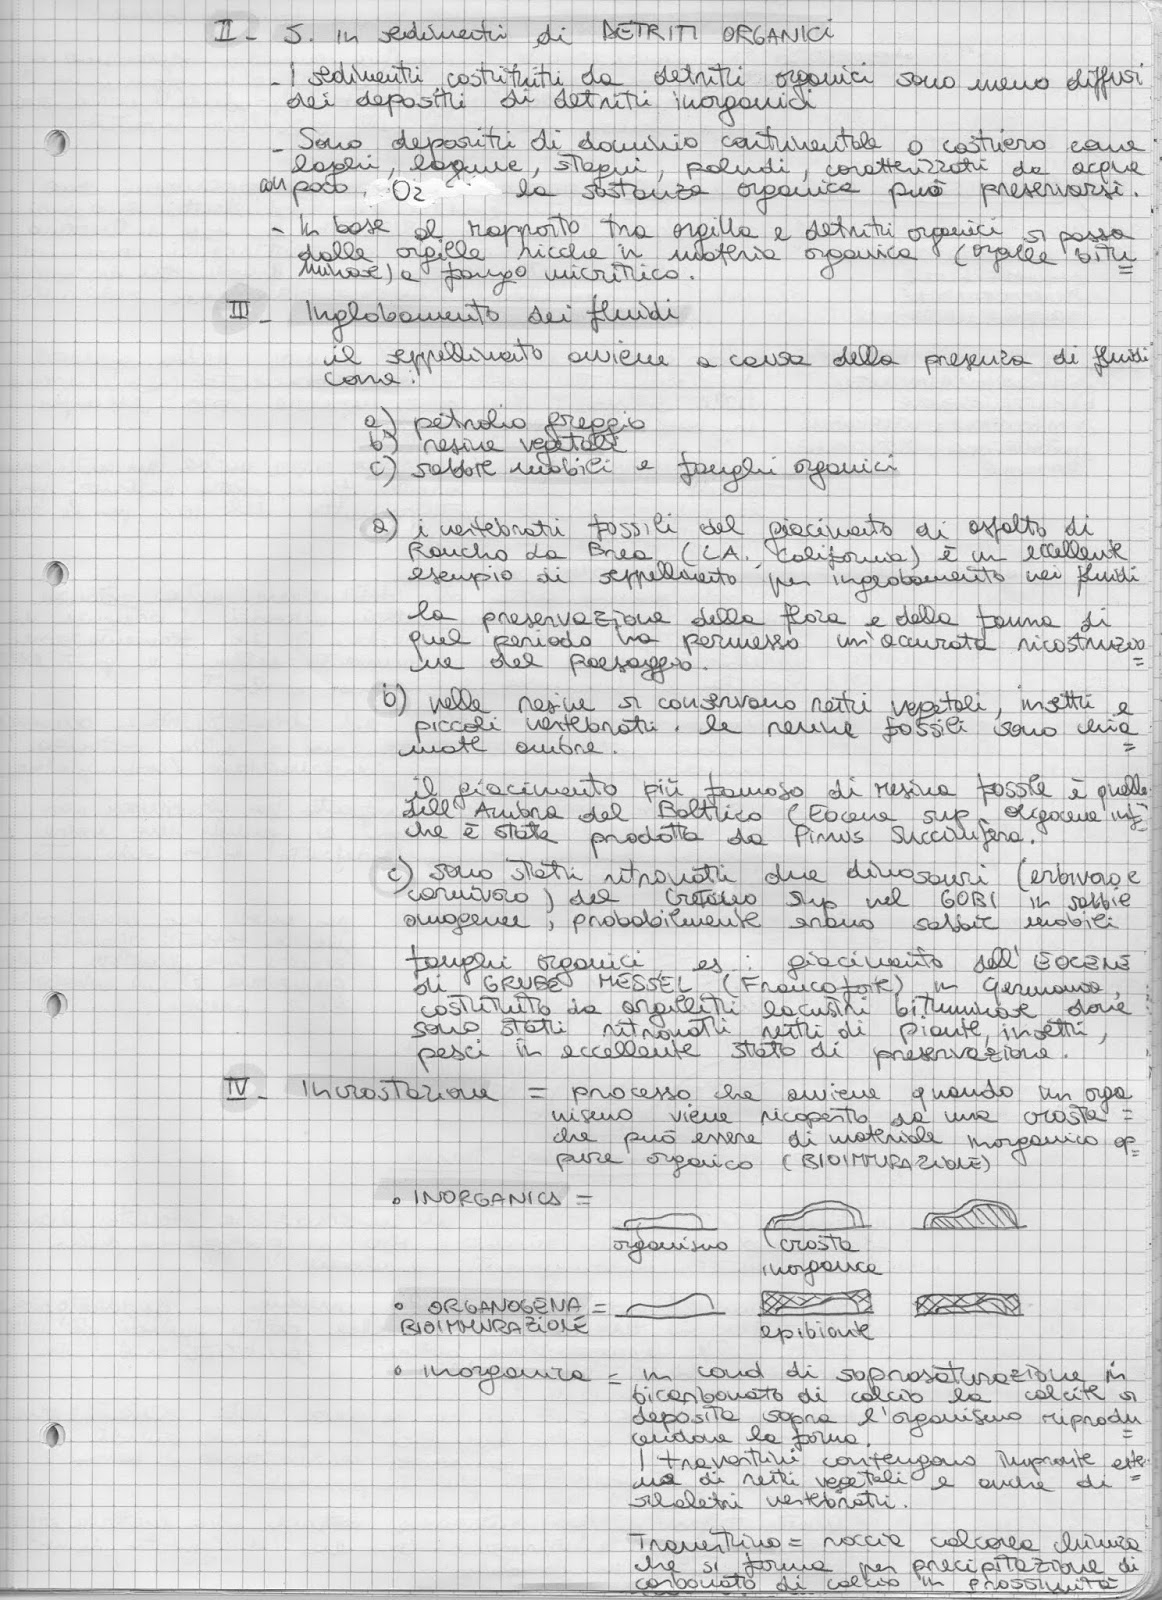 II - 5. In sedimenti di DETRITI ORGANICI
- I sedimenti costituiti da detriti organici sono meno diffusi
dei depositi di detriti inorganici
- Sono depositi di dominio continentale o costiero come
laghi, lagune, stagni, paludi, caratterizzati da acque
con poco O2 la sostanza organica può preservarsi.
- In base al rapporto tra argilla e detriti organici si passa
dalle argille ricche in materia organica (argille bitu=
minose) a fango micritico.
III - Inglobamento dei fluidi
il seppellimento avviene a causa della presenza di fluidi
come:
a) petrolio greggio
b) resine vegetali
c) sabbie mobili e fanghi organici
a) i vertebrati fossili del giacimento di asfalto di
Rancho La Brea (LA, California) è un eccellente
esempio di seppellimento per inglobamento nei fluidi
la preservazione della flora e della fauna di
quel periodo ha permesso un'accurata ricostruzio=
ne del paesaggio.
b) nelle resine si conservano resti vegetali, insetti e
piccoli vertebrati. le resine fossili sono chia=
mate ambre.
il giacimento più famoso di resina fossile è quello
dell'Ambra del Baltico (Eocene sup. Oligocene inf)
che è stata prodotta da Pinus Succinifera.
c) sono stati ritrovati due dinosauri (erbivoro e
carnivoro) del Cretaceo sup nel GOBI in sabbie
omogenee, probabilmente erano sabbie mobili
fanghi organici es: giacimento dell'EOCENE
di GRUBE MESSEL (Francoforte) in Germania,
costituito da argilliti lacustri bituminose dove
sono stati ritrovati resti di piante, insetti,
pesci in eccellente stato di preservazione.
IV - Incrostazione = processo che avviene quando un orga
nismo viene ricoperto da una crosta =
che può essere di materiale inorganico op=
pure organico (BIOIMMURAZIONE)
• INORGANICA =
organismo crosta
inorganica
• ORGANOGENA =
BIOIMMURAZIONE
epibionte
• inorganica = in cond di soprasaturazione in
bicarbonato di calcio la calcite si
deposita sopra l'organismo riprodu=
cendone la forma.
I travertini contengono impronte este=
rne di resti vegetali e anche di
scheletri vertebrati.
Travertino = roccia calcarea chimica
che si forma per precipitazione di
carbonato di calcio in prossimità